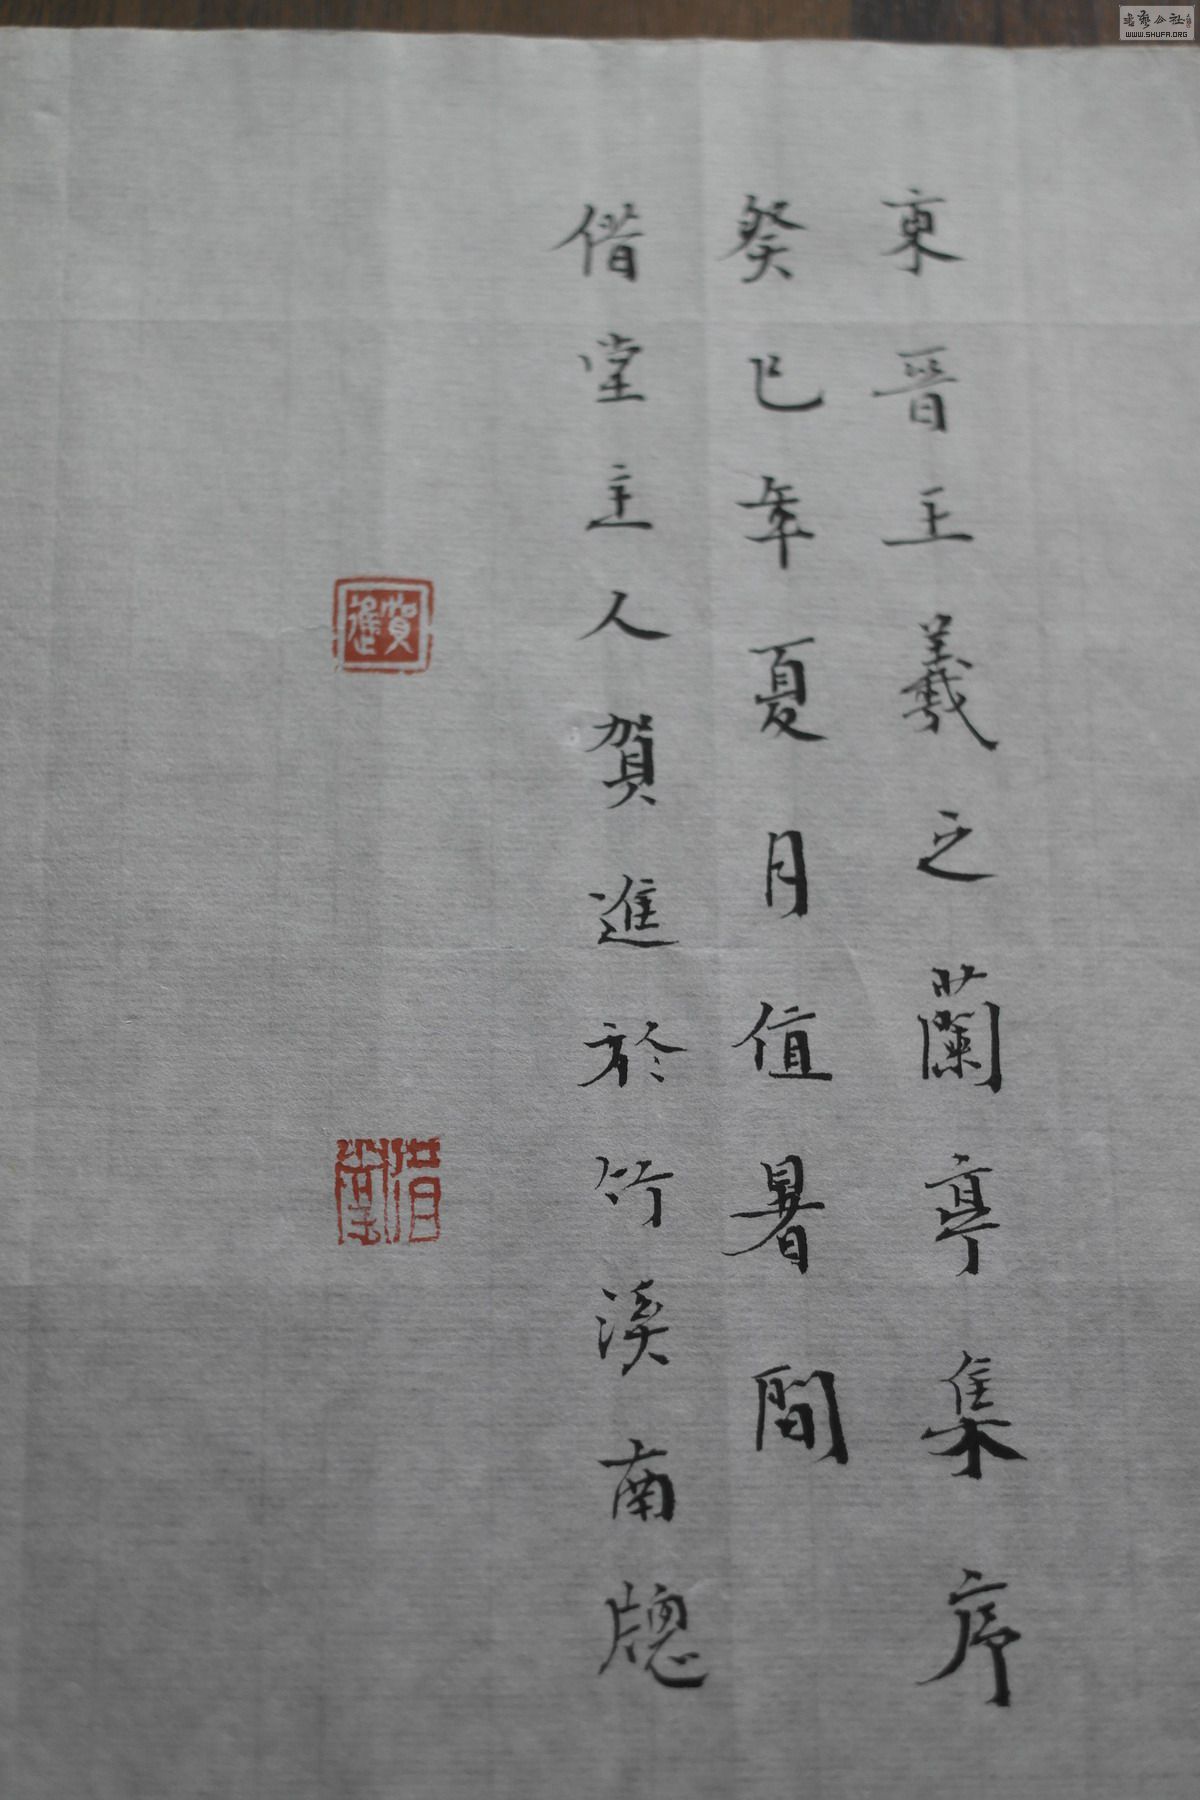 東晉王羲之蘭亭集序
癸巳年夏月值暑間
借堂主人賀進於竹溪南牕
賀進
借堂
书艺公社
WWW.SHUFA.ORG